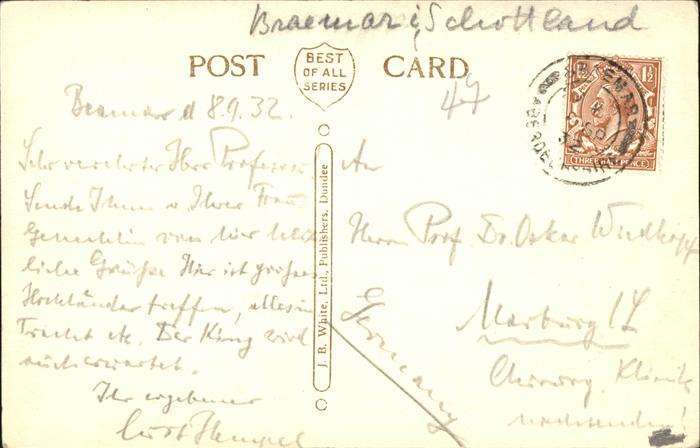 Braemar i/Schottland
POST CARD
BEST
OF ALL
SERIES
47
BRAEMAR
8 SP
32
ABERDEENSHIRE
1½
THREE HALFPENCE
Braemar d 8.9.32.
Sehr verehrter Herr Professor
Sende Ihnen u. Ihrer Frau
Gemahlin von hier
liche Grüße Hier ist großes
Hochländer treffen, alles in
Tracht etc. Der King wird
auch erwartet.
Ihr ergebener
Curt Hempel
J. B. White, Ltd., Publishers, Dundee
An
Herrn Prof. Dr. Oskar
Marburg
Chirurg. Klinik
Germany